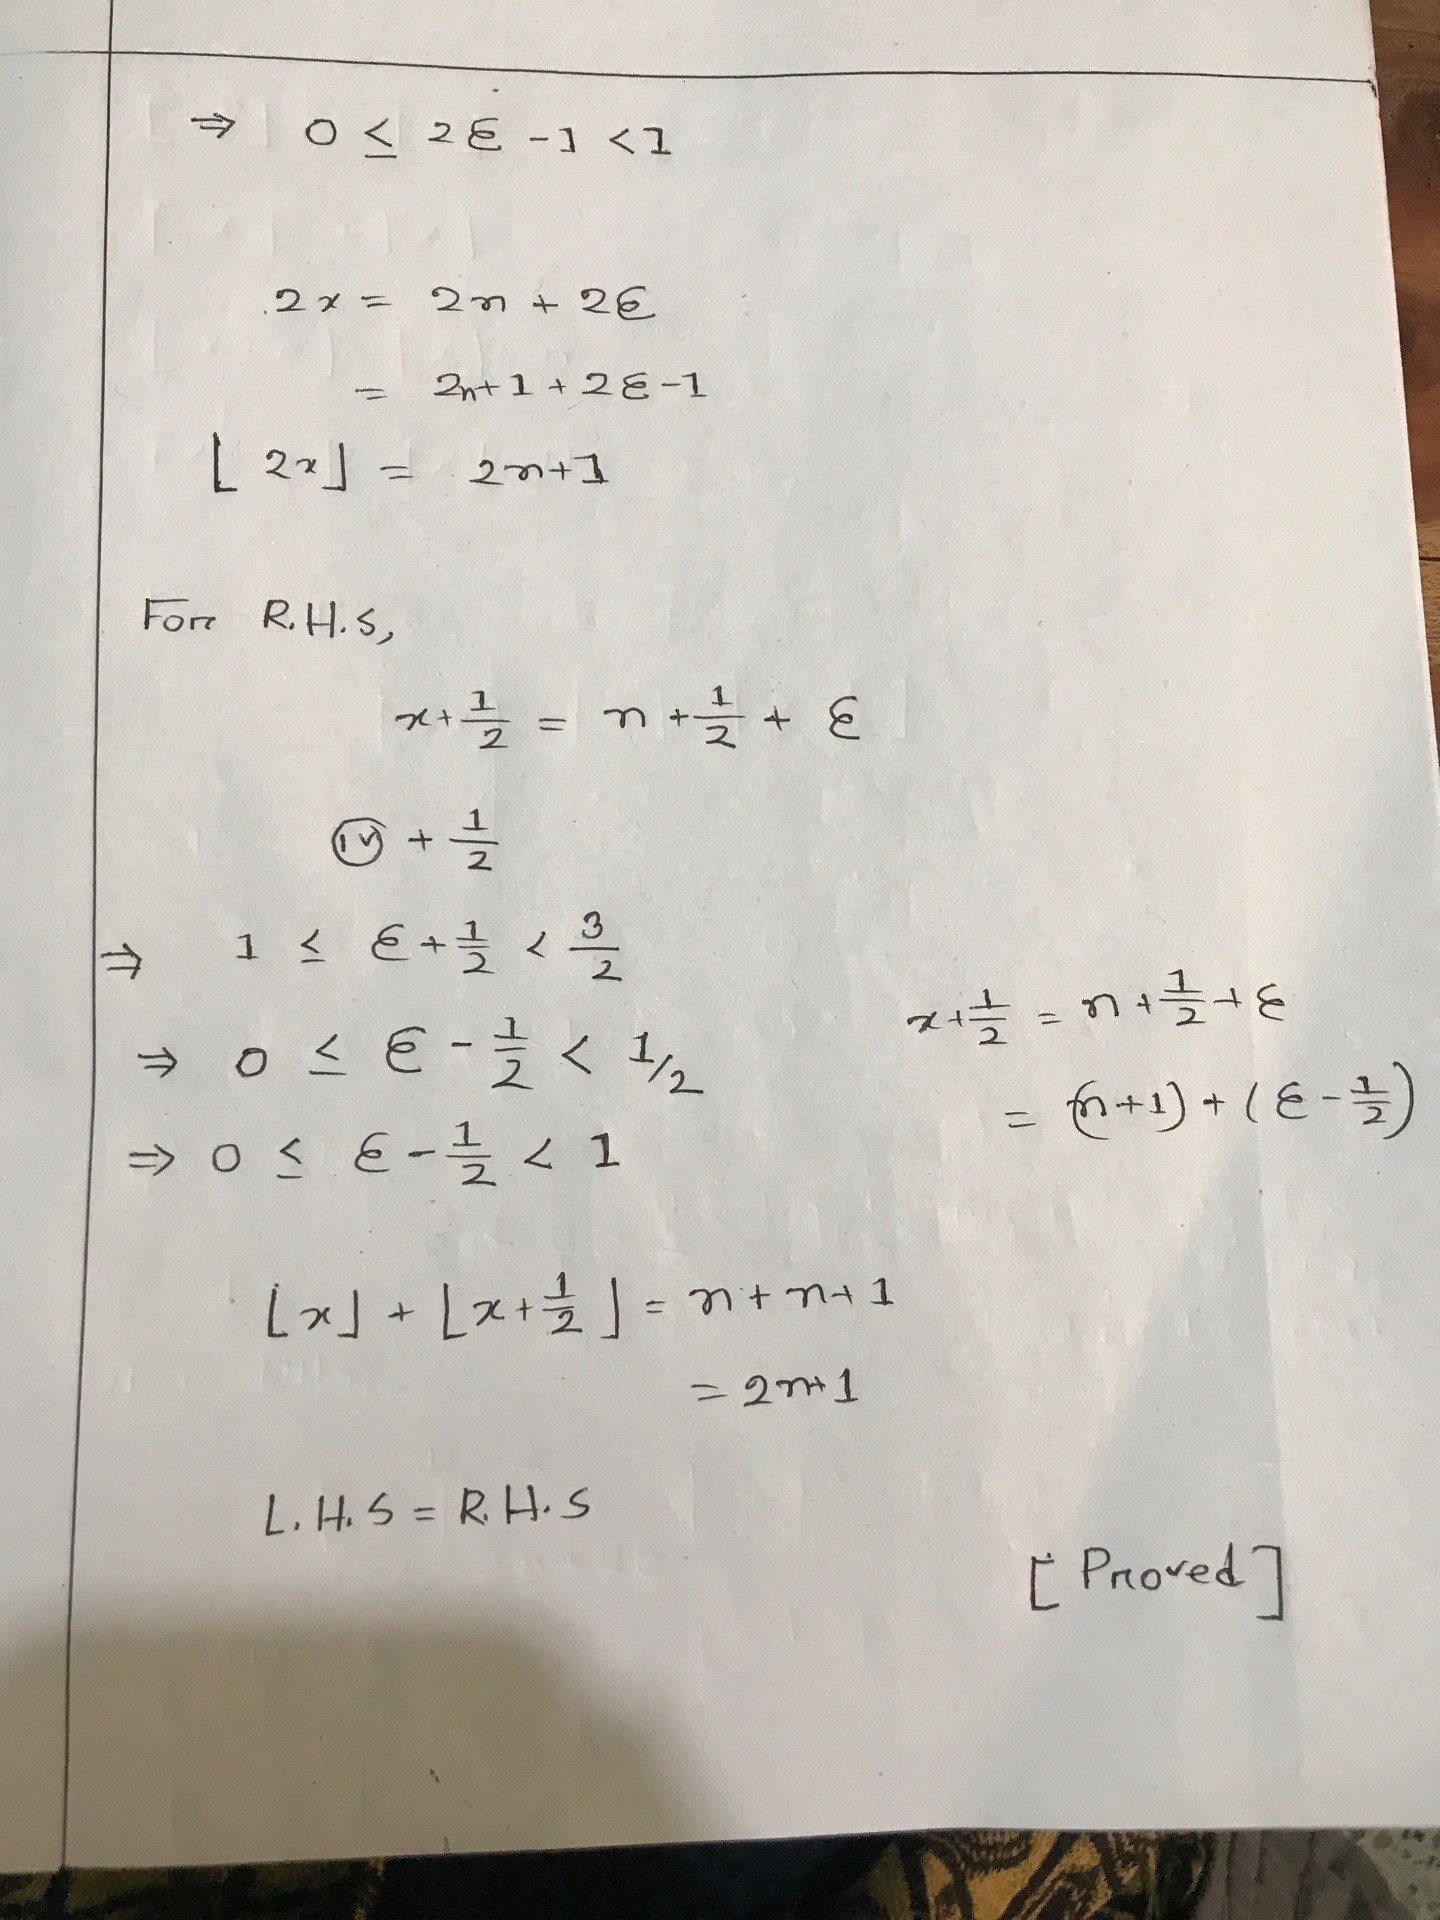 ⇒ 0 ≤ 2ε - 1 < 1
2x = 2n + 2ε
= 2n + 1 + 2ε - 1
⌊2x⌋ = 2n + 1
For R.H.S,
x + 1/2 = n + 1/2 + ε
(iv) + 1/2
⇒ 1 ≤ ε + 1/2 < 3/2
⇒ 0 ≤ ε - 1/2 < 1/2
⇒ 0 ≤ ε - 1/2 < 1
x + 1/2 = n + 1/2 + ε
= (n+1) + (ε - 1/2)
⌊x⌋ + ⌊x + 1/2⌋ = n + n + 1
= 2n + 1
L.H.S = R.H.S
[Proved]